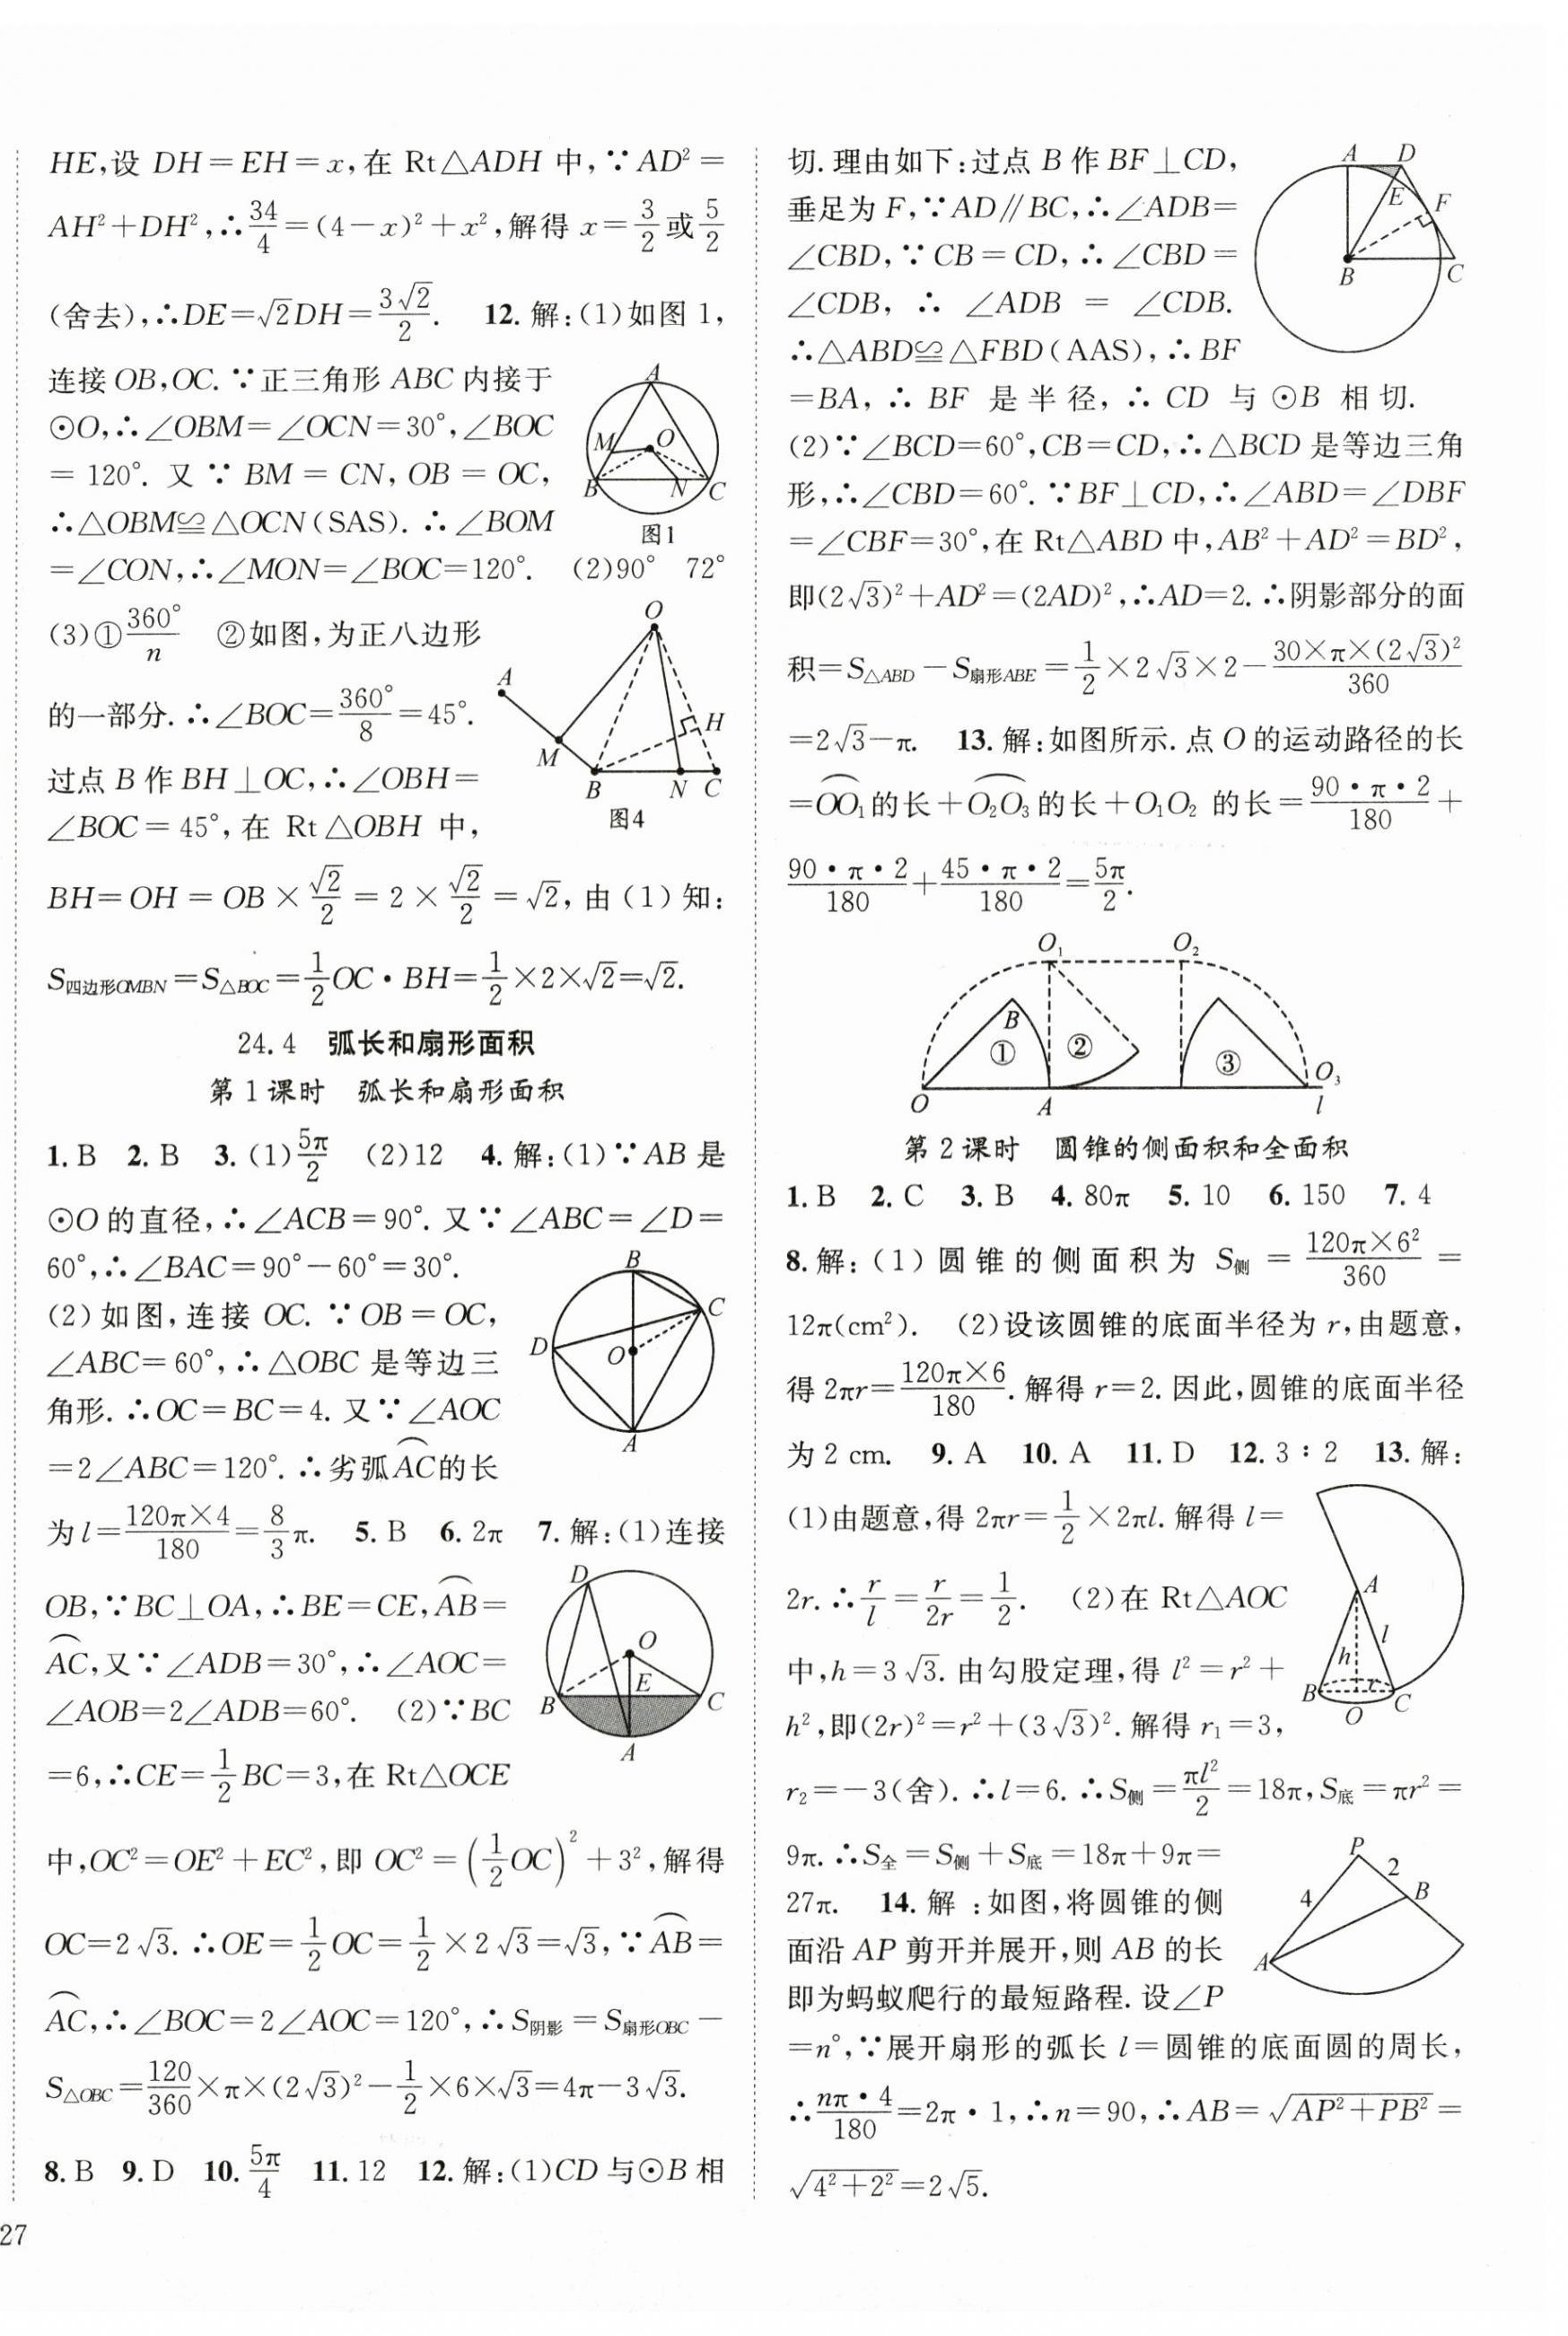 HE,设 DH=EH=x,在 Rt△ADH 中,∵AD²=
AH²+DH²,∴34/4=(4-x)²+x²,解得 x=3/2或5/2
(舍去),∴DE=√2DH=3√2/2. 12.解:(1)如图 1,
连接 OB,OC.∵正三角形 ABC 内接于
⊙O,∴∠OBM=∠OCN=30°,∠BOC
=120°. 又∵BM=CN,OB=OC,
∴△OBM≌△OCN(SAS).∴∠BOM
=∠CON,∴∠MON=∠BOC=120°. (2)90° 72°
A
M
O
B
N
C
图1
(3)①360°/n ②如图,为正八边形
的一部分.∴∠BOC=360°/8=45°.
过点 B 作 BH⊥OC,∴∠OBH=
∠BOC=45°,在 Rt△OBH 中,
O
A
H
M
B
N
C
图4
BH=OH=OB×√2/2=2×√2/2=√2,由(1)知:
S四边形OMBN=S△BOC=1/2OC·BH=1/2×2×√2=√2.
24.4 弧长和扇形面积
第1课时 弧长和扇形面积
1.B 2.B 3.(1)5π/2 (2)12 4.解:(1)∵AB 是
⊙O 的直径,∴∠ACB=90°.又∵∠ABC=∠D=
60°,∴∠BAC=90°-60°=30°.
(2)如图,连接 OC.∵OB=OC,
∠ABC=60°,∴△OBC 是等边三
角形.∴OC=BC=4.又∵∠AOC
=2∠ABC=120°.∴劣弧⌒AC的长
B
C
D
O
A
为 l=120π×4/180=8/3π. 5.B 6.2π 7.解:(1)连接
OB,∵BC⊥OA,∴BE=CE,⌒AB=
⌒AC,又∵∠ADB=30°,∴∠AOC=
∠AOB=2∠ADB=60°. (2)∵BC
=6,∴CE=1/2BC=3,在 Rt△OCE
D
O
E
B
C
A
中,OC²=OE²+EC²,即 OC²=(1/2OC)²+3²,解得
OC=2√3.∴OE=1/2OC=1/2×2√3=√3,∵⌒AB=
⌒AC,∴∠BOC=2∠AOC=120°,∴S阴影=S扇形OBC-
S△OBC=120/360×π×(2√3)²-1/2×6×√3=4π-3√3.
8.B 9.D 10.5π/4 11.12 12.解:(1)CD 与⊙B 相
27
切.理由如下:过点 B 作 BF⊥CD,
垂足为 F,∵AD∥BC,∴∠ADB=
∠CBD,∵CB=CD,∴∠CBD=
∠CDB,∴∠ADB=∠CDB.
∴△ABD≌△FBD(AAS),∴BF
=BA,∴BF 是半径,∴CD 与⊙B 相切.
A
D
E
F
B
C
(2)∵∠BCD=60°,CB=CD,∴△BCD 是等边三角
形,∴∠CBD=60°.∵BF⊥CD,∴∠ABD=∠DBF
=∠CBF=30°,在 Rt△ABD 中,AB²+AD²=BD²,
即(2√3)²+AD²=(2AD)²,∴AD=2.∴阴影部分的面
积=S△ABD-S扇形ABE=1/2×2√3×2-30×π×(2√3)²/360
=2√3-π. 13.解:如图所示.点 O 的运动路径的长
=⌒OO₁的长+⌒O₂O₃的长+O₁O₂ 的长=90·π·2/180+
90·π·2/180+45·π·2/180=5π/2.
O₁
O₂
B
①
②
③
O₃
O
A
l
第2课时 圆锥的侧面积和全面积
1.B 2.C 3.B 4.80π 5.10 6.150 7.4
8.解:(1)圆锥的侧面积为 S侧=120π×6²/360=
12π(cm²). (2)设该圆锥的底面半径为 r,由题意,
得 2πr=120π×6/180.解得 r=2.因此,圆锥的底面半径
为 2 cm. 9.A 10.A 11.D 12.3∶2 13.解:
(1)由题意,得 2πr=1/2×2πl.解得 l=
2r.∴r/l=r/2r=1/2. (2)在 Rt△AOC
中,h=3√3.由勾股定理,得 l²=r²+
h²,即(2r)²=r²+(3√3)².解得 r₁=3,
A
l
h
r
B
C
O
r₂=-3(舍).∴l=6.∴S侧=πl²/2=18π,S底=πr²=
9π.∴S全=S侧+S底=18π+9π=
27π. 14.解:如图,将圆锥的侧
面沿 AP 剪开并展开,则 AB 的长
即为蚂蚁爬行的最短路程.设∠P
P
2
4
B
A
=n°,∵展开扇形的弧长 l=圆锥的底面圆的周长,
∴nπ·4/180=2π·1,∴n=90,∴AB=√(AP²+PB²)=
√(4²+2²)=2√5.